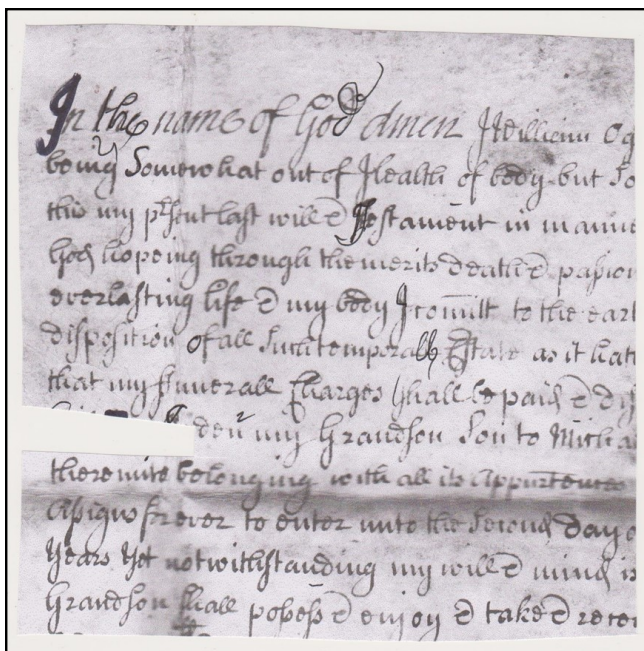 In the name of God Amen I William Og
being Somewhat out of Health of body but So
this my prsent last will & Testament in manne
God hopeing through the merits death & passion
everlasting life & my body I comitt to the eart
disposition of all Such temporall Estate as it hath
that my funerall Charges shall be paid & dis
my Grandson Son to Micha
thereunto belonging with all its Appurtences
Assignes forever to enter unto the Second day o
years Yet notwithstanding my will & mind is
Grandson shall possess & enjoy & take & recei